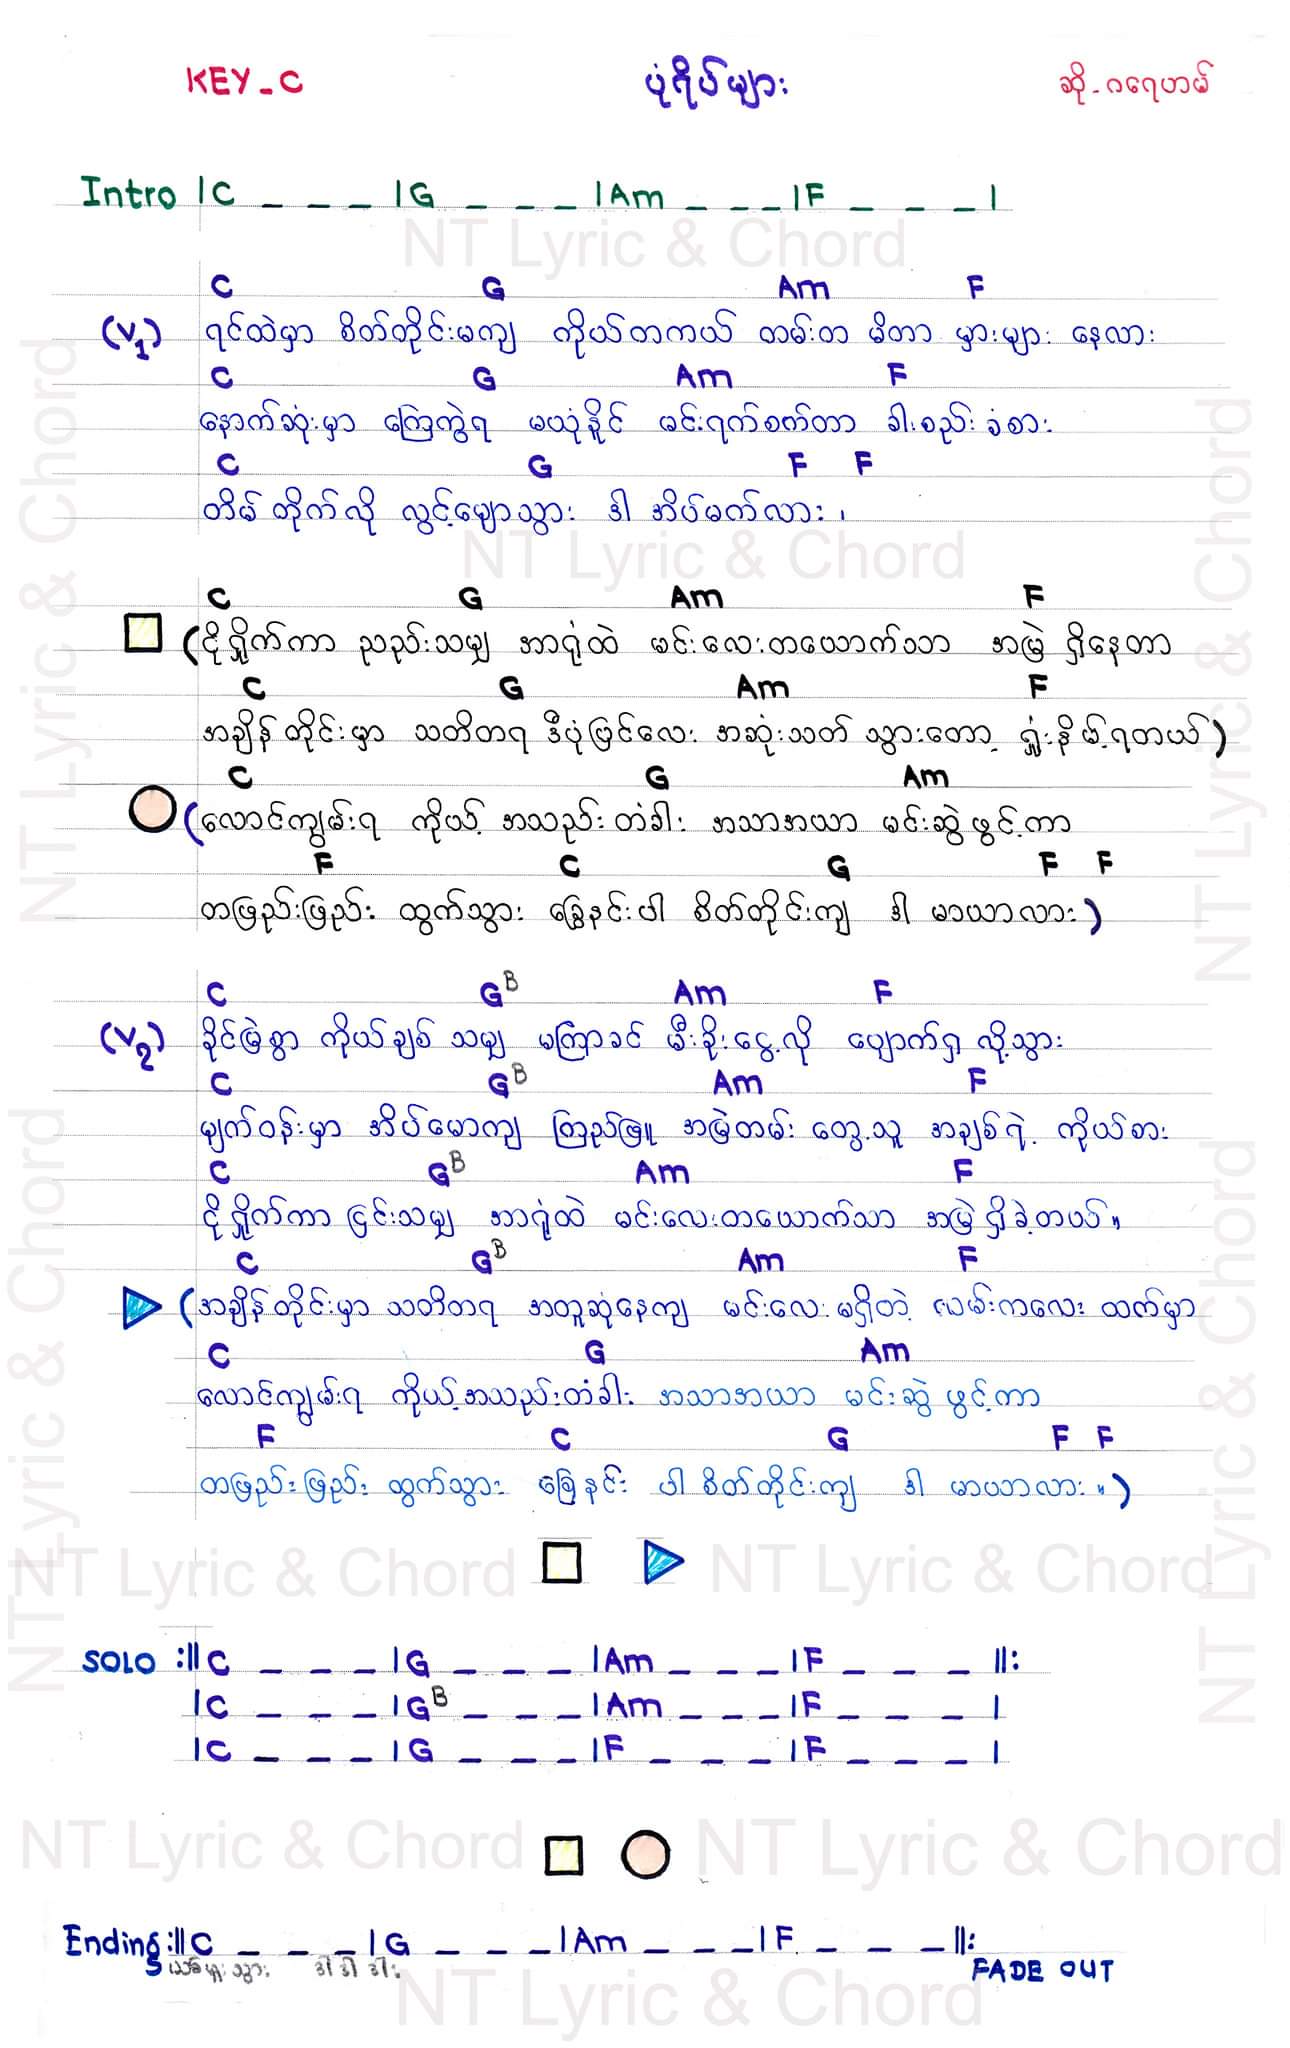 KEY_C ပုံရိပ်များ ဆို-ဂရေဟမ်
Intro |C _ _ _ |G _ _ _ |Am _ _ _ |F _ _ _ |
NT Lyric & Chord
C G Am F
(V1) ရင်ထဲမှာ စိတ်တိုင်းမကျ ကိုယ်တကယ် တမ်းတ မိတာ မှားများ နေလား
C G Am F
နောက်ဆုံးမှာ ကြေကွဲရ မယုံနိူင် မင်းရက်စက်တာ ခါးစည်း ခံစား
C G F F
တိမ် တိုက်လို လွင့်မျောသွား ဒါ အိပ်မက်လား ၊
NT Lyric & Chord
C G Am F
(ငိုရှိုက်ကာ ညည်းသမျှ အာရုံထဲ မင်းလေးတယောက်သာ အမြဲ ရှိနေတာ
C G Am F
အချိန် တိုင်းမှာ သတိတရ ဒီပုံပြင်လေး အဆုံးသတ် သွားတော့ ရှုံးနိမ့်ရတယ်)
C G Am
(လောင်ကျွမ်းရ ကိုယ့် အသည်းတံခါး အသာအယာ မင်းဆွဲ ဖွင့်ကာ
F C G F F
တဖြည်းဖြည်း ထွက်သွား ခြေနင်းပါ စိတ်တိုင်းကျ ဒါ မာယာလား)
C GB Am F
(V2) ခိုင်မြဲစွာ ကိုယ်ချစ် သမျှ မကြာခင် မီးခိုးငွေ့လို ပျောက်ရှ လို့သွား
C GB Am F
မျက်ဝန်းမှာ အိပ်မောကျ ကြည်ဖြူ အမြဲတမ်း တွေ့သူ အချစ်ရဲ့ ကိုယ်စား
C GB Am F
ငိုရှိုက်ကာ ငြင်းသမျှ အာရုံထဲ မင်းလေးတယောက်သာ အမြဲ ရှိခဲ့တယ်။
C GB Am F
(အချိန်တိုင်းမှာ သတိတရ အတူဆုံနေကျ မင်းလေး မရှိတဲ့ လမ်းကလေး ထက်မှာ
C G Am
လောင်ကျွမ်းရ ကိုယ့်အသည်းတံခါး အသာအယာ မင်းဆွဲ ဖွင့်ကာ
F C G F F
တဖြည်းဖြည်း ထွက်သွား ခြေနင်း ပါ စိတ်တိုင်းကျ ဒါ မာယာလား ။)
NT Lyric & Chord NT Lyric & Chord
SOLO :||C _ _ _ |G _ _ _ |Am _ _ _ |F _ _ _ ||:
|C _ _ _ |GB _ _ _ |Am _ _ _ |F _ _ _ |
|C _ _ _ |G _ _ _ |F _ _ _ |F _ _ _ |
NT Lyric & Chord NT Lyric & Chord
Ending :||C _ _ _ |G _ _ _ |Am _ _ _ |F _ _ _ ||:
သွား ဒါ ဒါ ဒါ FADE OUT
NT Lyric & Chord
NT Lyric & Chord
NT Lyric & Chord
NT Lyric & Chord
NT Lyric & Chord